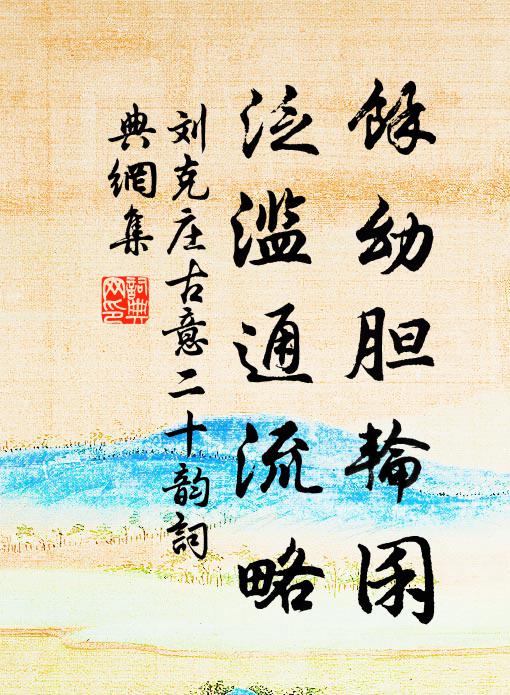 餘幼胆輪囷
泛滥通流略
刘克庄古意二十韵詞
典網集
詞典网印